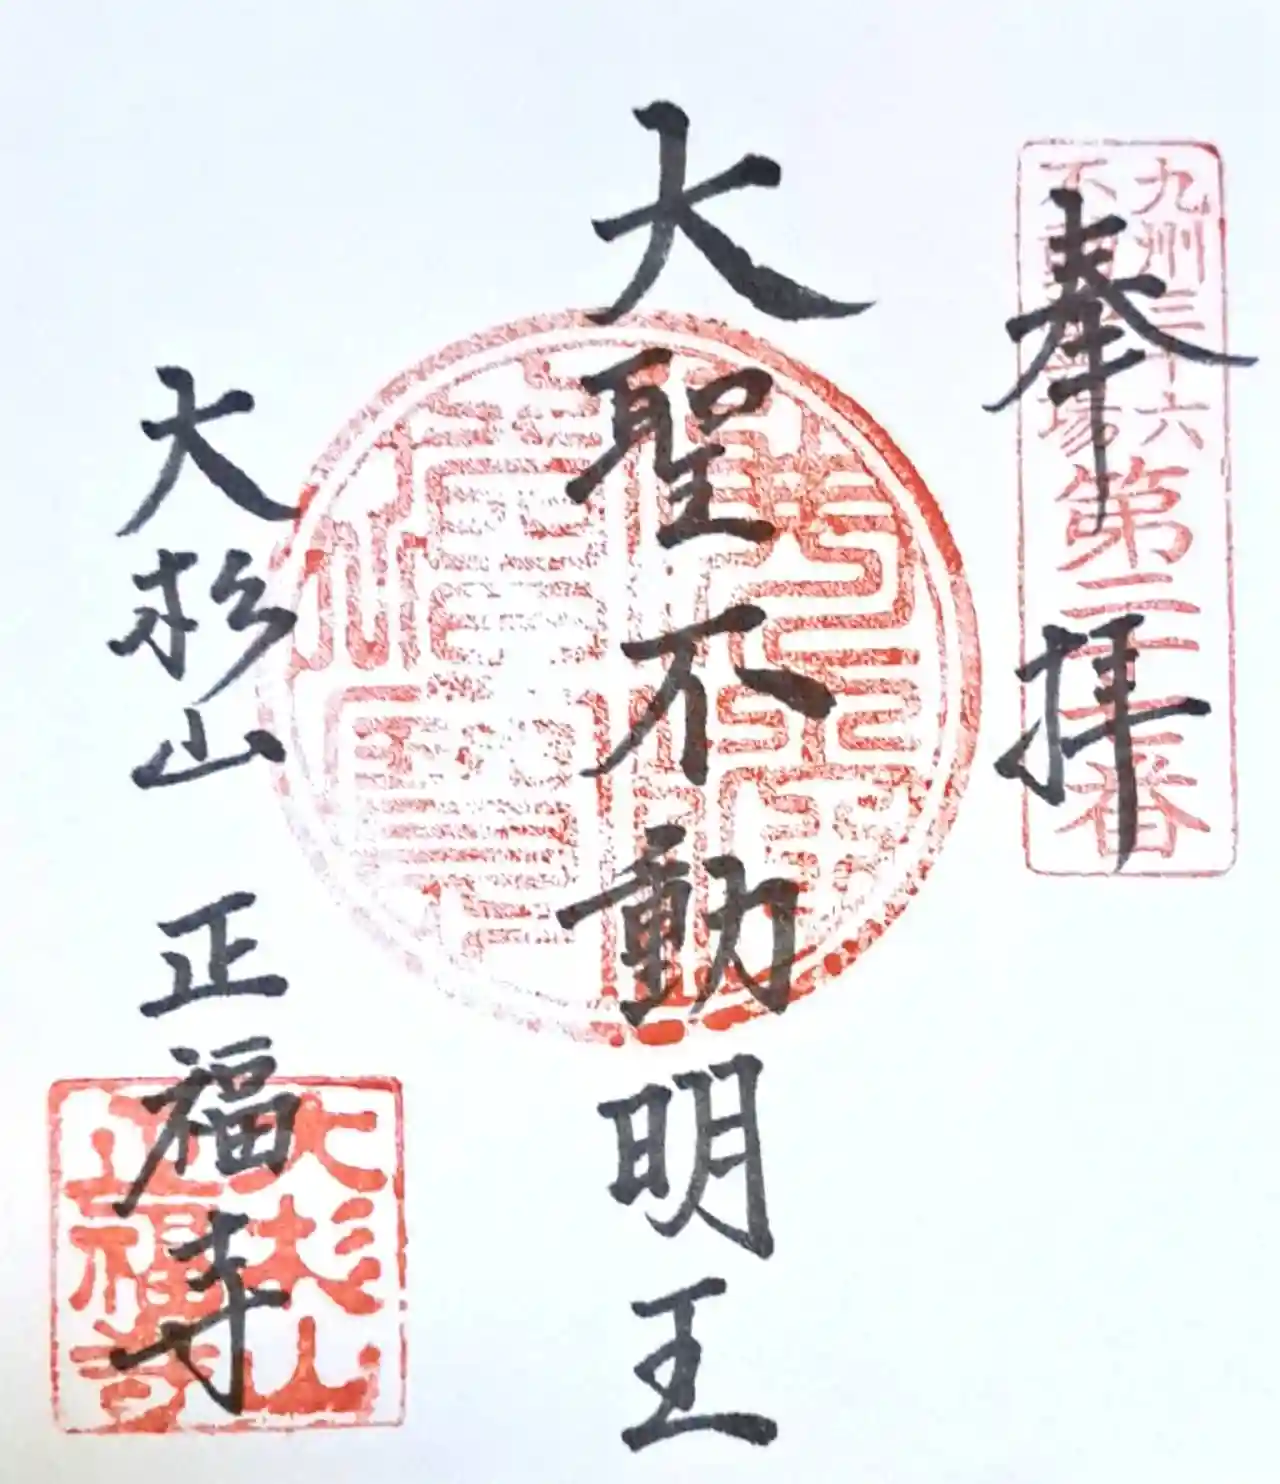 奉拝
九州三十六
不動霊場
第三十二番
大聖不動明王
大杉山 正福寺
大杉山
正福寺